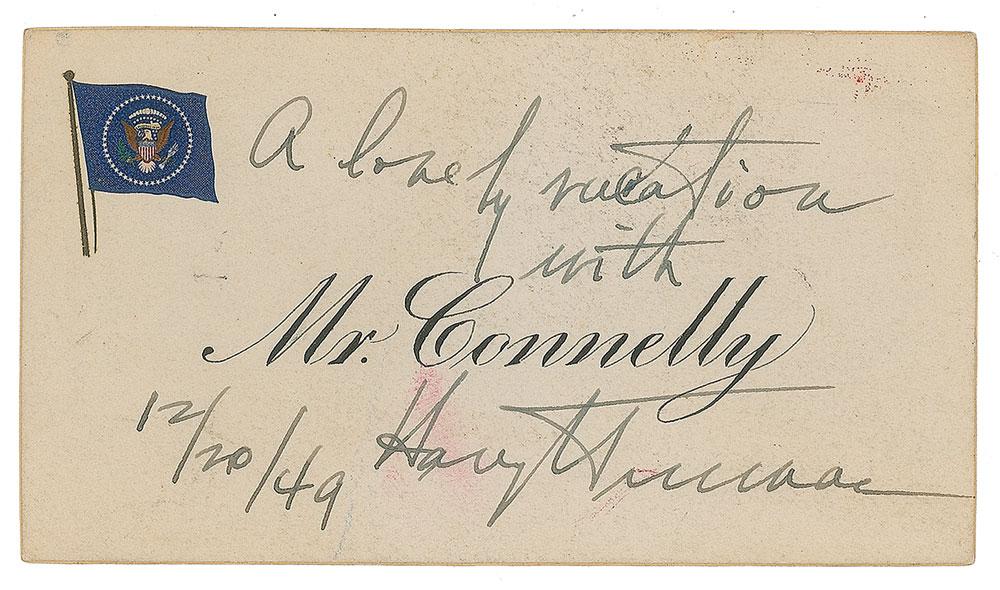 A lovely vacation
with
Mr. Connelly
12/20/49 Harry Truman